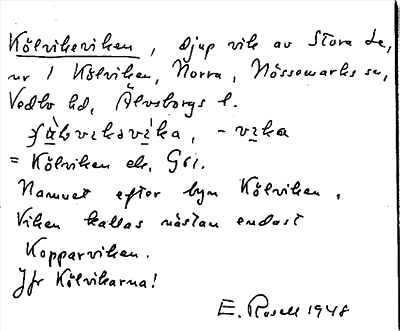 Kölvikeviken, djup vik av Stora Le,
nr 1 Kölviken, Norra, Nössemarks sn,
Vedbo hd, Älvsborgs l.
= Kölviken ek. Gri.
Namnet efter byn Kölviken.
Viken kallas nästan endast
Kopparviken.
Jfr Kölvikarna!
E. Rosell 1948